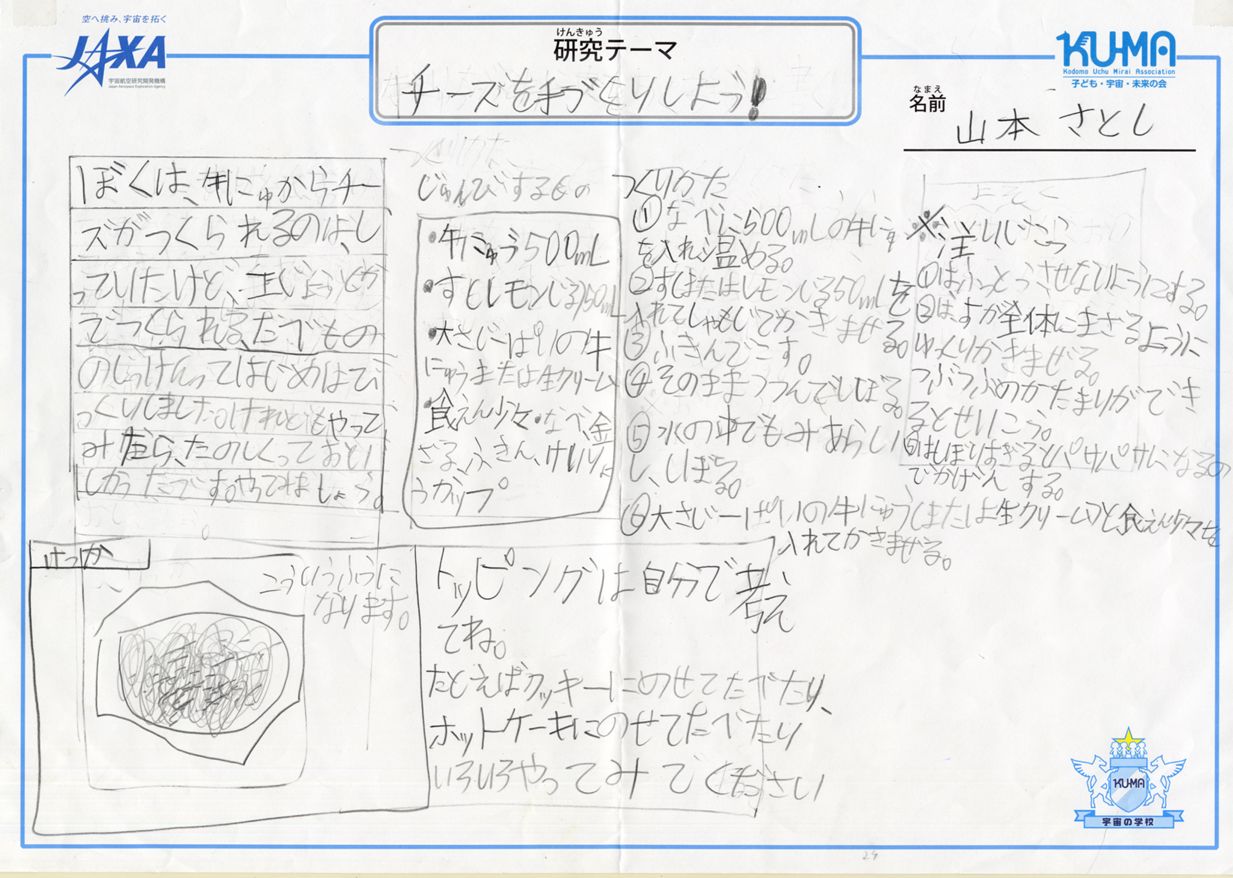 空へ挑み、宇宙を拓く
JAXA
宇宙航空研究開発機構
Japan Aerospace Exploration Agency
けんきゅう
研究テーマ
チーズを手づくりしよう!
KU-MA
Kodomo Uchu Mirai Association
子ども・宇宙・未来の会
なまえ
名前
山本 さとし
ぼくは、牛にゅからチー
ズがつくられるのは、し
っていたけど、
でつくられる、たべもの
のじっけんってはじめはび
っくりしました。けれどもやって
みたら、たのしくっておいし
しかったです。やってみましょう。
じゅんびするもの
・牛にゅう500mL
・すとレモンじる50mL
・大さじ一ぱいの牛
にゅうまたは生クリーム
・食えん少々・なべ、金
ざる、ふきん、けいりょ
うかップ
つくりかた
①なべに500mLの牛にゅ
を入れ温める。
②すまたはレモンじる50mLを
入れてしゃもじでかきませる。
③ふきんでこす。
④そのままつつんでしぼる。
⑤水の中でもみあらい
し、しぼる。
⑥大さじ一ぱいの牛にゅう(または生クリーム)と食えん少々を
入れてかきませる。
よそく
※注
①はふっとうさせないようにする。
②はすが全体にまざるように
ゆっくりかきまぜる。
つぶつぶのかたまりができ
るとせいこう。
⑤はしぼりすぎるとパサパサになるの
でかげんする。
けっか
こういうふうに
なります。
トッピングは自分で考え
てね。
たとえばクッキーにのせてたべたり、
ホットケーキにのせてたべたり
いろいろやってみてください
KU-MA
宇宙の学校
24